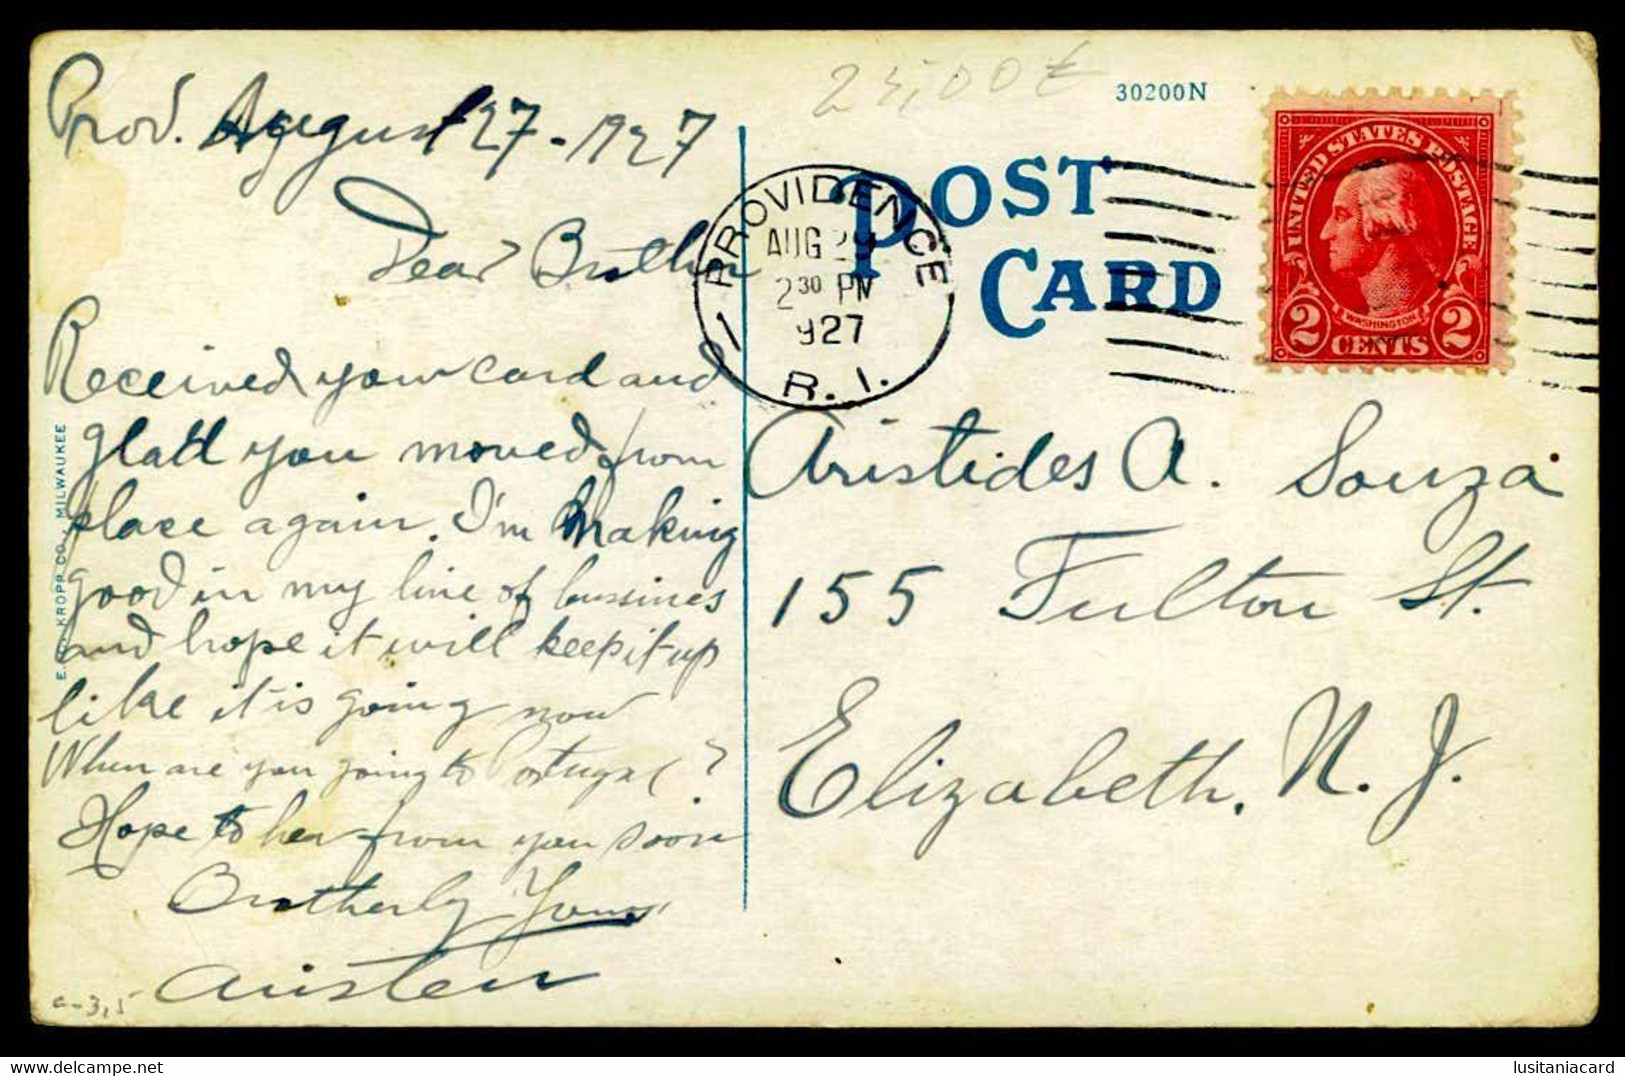 Prov. August 27 - 1927
Dear Brother
Received your card and
glad you moved from
place again. I'm making
good in my line of bussines
and hope it will keep it up
like it is going now
When are you going to Portugal?
Hope to her from you soon
Brotherly Yours
a-3,5
E. C. KROPP CO., MILWAUKEE
25,00€
30200N
POST
CARD
PROVIDENCE
AUG 29
2 30 PM
1927
R. I.
UNITED STATES POSTAGE
WASHINGTON
2 CENTS 2
Aristides A. Souza
155 Fulton St.
Elizabeth, N. J.
delcampe.net
lusitaniacard